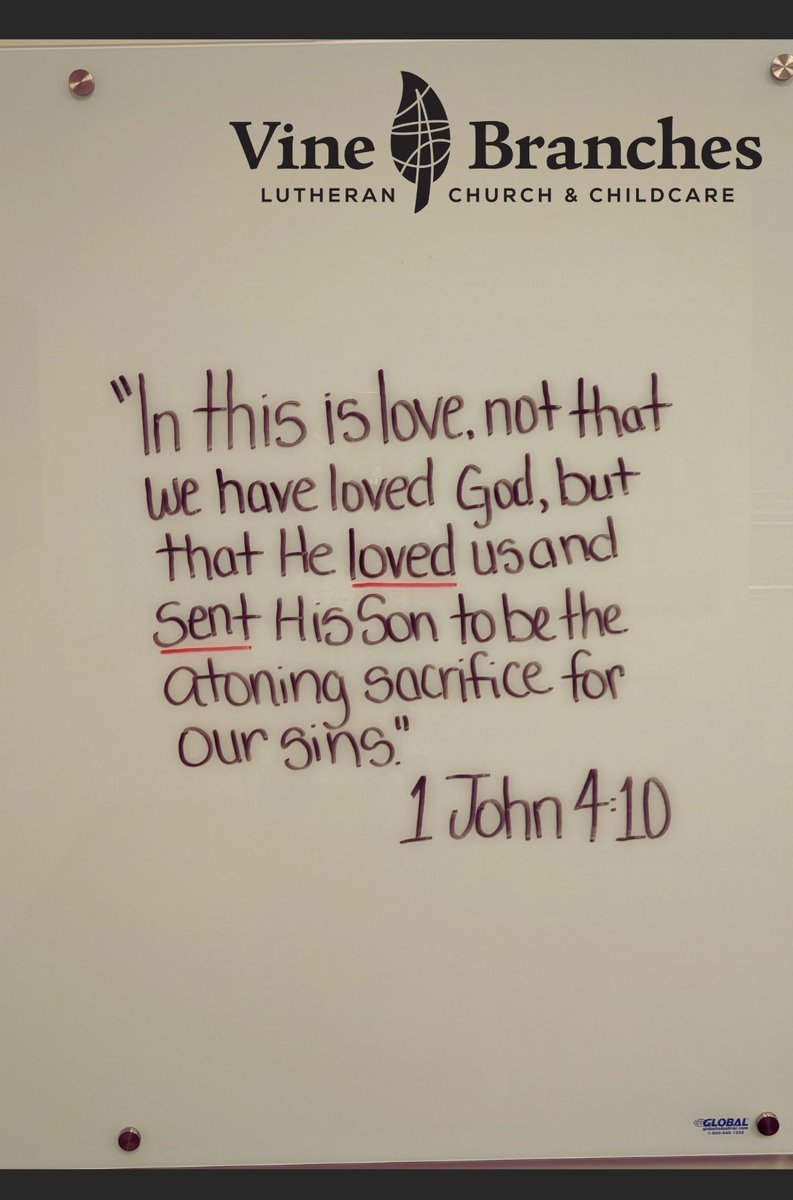 Vine Branches
LUTHERAN CHURCH & CHILDCARE
"In this is love, not that
we have loved God, but
that He loved us and
sent His Son to be the
atoning sacrifice for
our sins."
1 John 4:10
GLOBAL
globalindustrial.com
1-800-645-1232